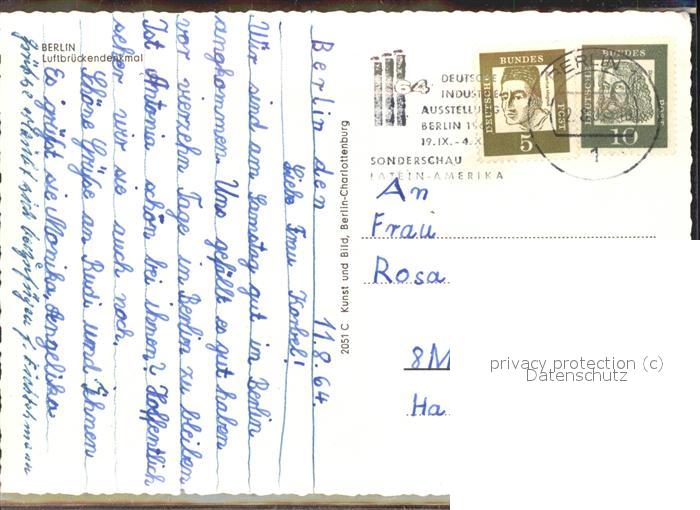 BERLIN
Luftbrückendenkmal
Berlin den 11.8.64.
Liebe Frau Korbel!
Wir sind am Samstag gut in Berlin
angkommen. Uns gefällt es gut haben
vor vierzehn Tage in Berlin zu bleiben.
Ist Antonia schön bei ihnen? Hoffentlich
sehen wir sie auch noch.
Schöne Grüße an Rudi und Ihnen
Es grüßt sie Monika, Angelika
2051 C Kunst und Bild, Berlin-Charlottenburg
64 DEUTSCHE
INDUSTRIE
AUSSTELLUNG
BERLIN 19
19.IX.-4.X
SONDERSCHAU
LATEIN-AMERIKA
DEUTSCHE
BUNDES
POST
5
DEUTSCHE
BUNDES
POST
10
BERLIN
1
An
Frau
Rosa
8M
Ha
privacy protection (c)
Datenschutz